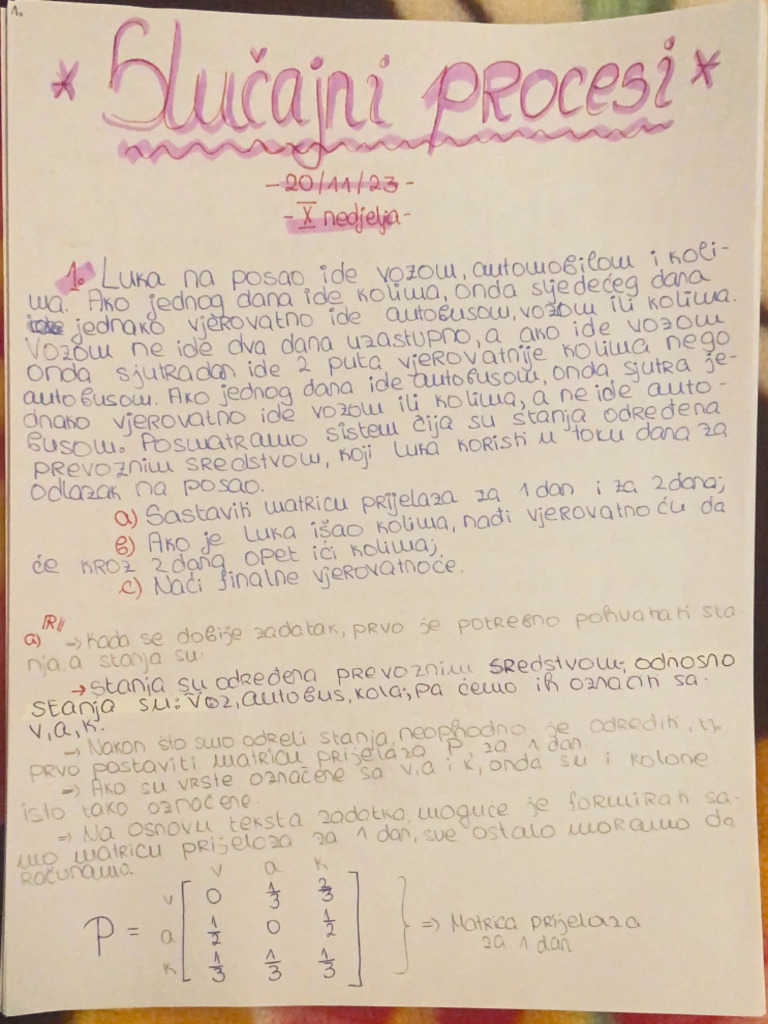 1.
* Slučajni procesi *
-20/11/23-
-X nedjelja-
1. Luka na posao ide vozom, automobilom i koli-
ma. Ako jednog dana ide kolima, onda sljedećeg dana
jednako vjerovatno ide autobusom, vozom ili kolima.
Vozom ne ide dva dana uzastupno, a ako ide vozom
onda sjutradan ide 2 puta vjerovatnije kolima nego
autobusom. Ako jednog dana ide autobusom, onda sjutra je-
dnako vjerovatno ide vozom ili kolima, a ne ide auto-
busom. Posmatramo sistem čija su stanja određena
prevoznim sredstvom, koji Luka koristi u toku dana za
odlazak na posao.
a) Sastaviti matricu prijelaza za 1 dan i za 2 dana;
b) Ako je Luka išao kolima, nađi vjerovatnoću da
će kroz 2 dana opet ići kolima;
c) Naći finalne vjerovatnoće.
a) |R|| → Kada se dobije zadatak, prvo je potrebno pohvatati sta-
nja, a stanja su:
→ Stanja su određena prevoznim sredstvom, odnosno
stanja su: voz, autobus, kola; pa ćemo ih označiti sa
v, a, k.
→ Nakon što smo odreli stanja, neophodno je odrediti, tj.
prvo postaviti matricu prijelaza P, za 1 dan.
→ Ako su vrste označene sa v, a i k, onda su i kolone
isto tako označene.
→ Na osnovu teksta zadatka, moguće je formirati sa-
mo matricu prijelaza za 1 dan, sve ostalo moramo da
računamo.
v a k
v 0 1/3 2/3
P = a 1/2 0 1/2 } ⇒ Matrica prijelaza
za 1 dan
k 1/3 1/3 1/3